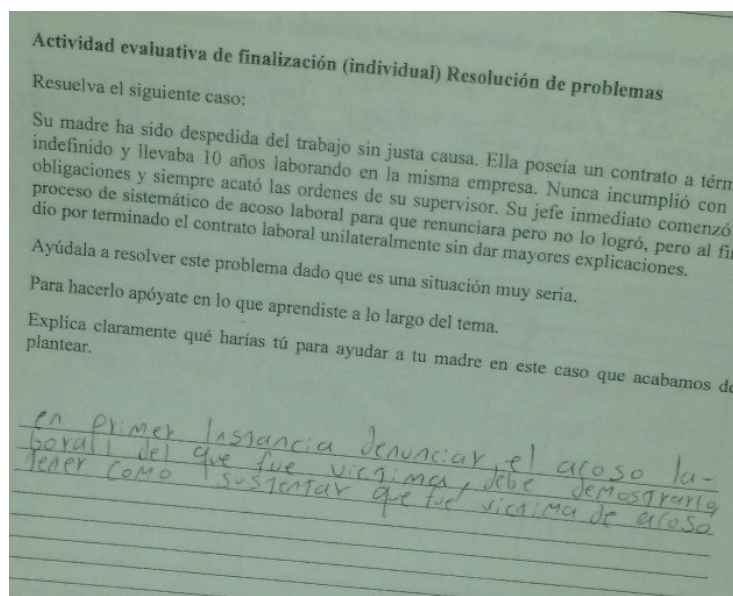 Actividad evaluativa de finalización (individual) Resolución de problemas
Resuelva el siguiente caso:
Su madre ha sido despedida del trabajo sin justa causa. Ella poseía un contrato a térm
indefinido y llevaba 10 años laborando en la misma empresa. Nunca incumplió con
obligaciones y siempre acató las ordenes de su supervisor. Su jefe inmediato comenzó
proceso de sistemático de acoso laboral para que renunciara pero no lo logró, pero al fi
dio por terminado el contrato laboral unilateralmente sin dar mayores explicaciones.
Ayúdala a resolver este problema dado que es una situación muy seria.
Para hacerlo apóyate en lo que aprendiste a lo largo del tema.
Explica claramente qué harías tú para ayudar a tu madre en este caso que acabamos d
plantear.
en primer Instancia denunciar, el acoso la-
boral, del que fue victima, debe demostrarlo
tener como sustentar que fue victima de acoso